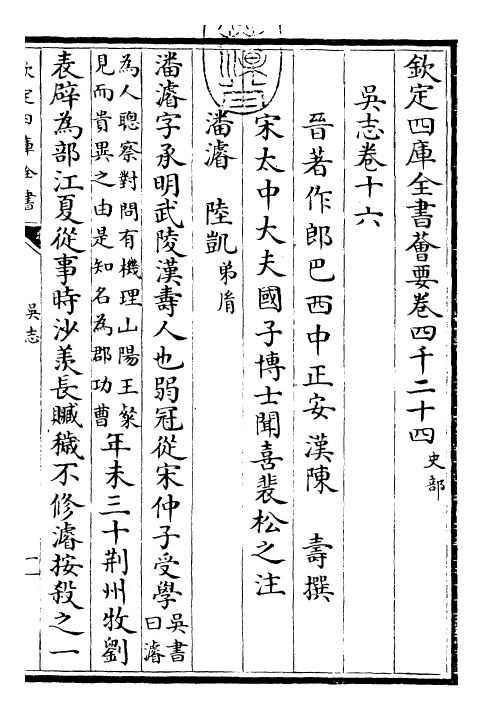 欽定四庫全書薈要卷四千二十四 史部
吳志卷十六
晉著作郎巴西中正安漢陳 壽撰
宋太中大夫國子博士聞喜裴松之注
潘濬 陸凱 弟胤
潘濬字承明武陵漢壽人也弱冠從宋仲子受學 吳書曰濬
為人聰察對問有機理山陽王粲見而貴異之由是知名為郡功曹 年未三十荆州牧劉
表辟為部江夏從事時沙羨長贓穢不修濬按殺之一
欽定四庫全書
吳志
一